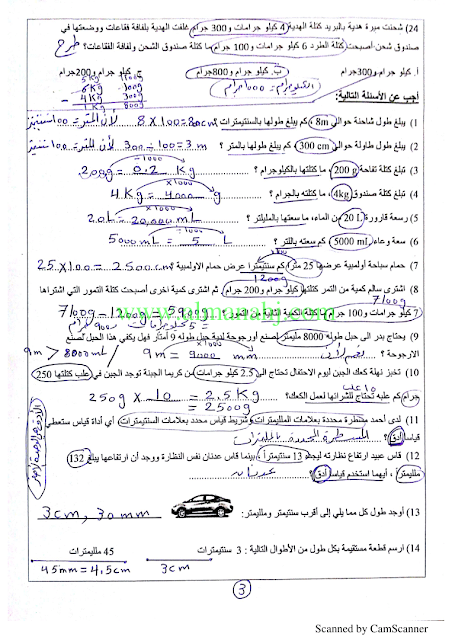 24) شحنت ميرة هدية بالبريد كتلة الهدية 4 كيلو جرامات و300 جرام غلفت الهدية بلفافة فقاعات ووضعتها في
صندوق شحن أصبحت كتلة الطرد 6 كيلو جرامات و100 جرام ما كتلة صندوق الشحن ولفافة الفقاعات؟ طرح
أ. كيلو جرام و300جرام ب. كيلو جرام و800جرام كيلو جرام و200جرام
الكيلوجرام = 1000 جرام
أجب عن الأسئلة التالية:
1) يبلغ طول شاحنة حوالي 8m كم يبلغ طولها بالسنتيمترات ؟ 8 X 100 = 80cm لأن المتر = 100 سنتيمتر
2) يبلغ طول طاولة حوالي 300 cm كم يبلغ طولها بالمتر ؟ 300 ÷ 100 = 3 m لأن المتر = 100 سنتيمتر
3) تبلغ كتلة تفاحة 200 g ، ما كتلتها بالكيلوجرام ؟ 200g = 0.2 Kg ÷1000
4) تبلغ كتلة صندوق 4kg ، ما كتلته بالجرام ؟ 4Kg = 4000 g X1000
5) وسعة قارورة 20 L من الماء، ما سعتها بالملليلتر ؟ 20L = 20,000 mL X1000
6) سعة وعاء 5000 mL كم سعته باللتر ؟ 5000mL = 5 L ÷1000
7) حمام سباحة أولمبية عرضها 25 مترا كم سنتيمترا عرض حمام الاولمبية ؟ 25 X 100 = 2500 cm
1200g
8) اشترى سالم كمية من التمر كتلتها كيلو جرام و200 جرام ، ثم اشترى كمية اخرى أصبحت كتلة التمور التي اشتراها
7100g
7 كيلو جرامات و100 جرام، ما كتلة الكمية الثانية من التمر؟ 7100 - 1200 = 5900g
www.almanahj.com
= 5 كيلوجرامات و900 جرام
9) يحتاج بدر الى حبل طوله 8000 مليمتر لصنع أورجوحة لدية حبل طوله 9 أمتار فهل يكفي هذا الحبل لصنع
الارجوحة ؟ 9m = 9000 mm 9m > 8000mm
10) تخبز نهلة كعك الجبن ليوم الاحتفال تحتاج الى 2.5 كيلو جرامات من كريما الجبنة توجد الجبن في علب كتلتها 250
جرام كم علبه تحتاج لشرائها لعمل الكعك؟ 10 علب 250g X 10 = 2.5 Kg
= 2500g
11) لدى أحمد مسطرة محددة بعلامات المليمترات وشريط قياس محدد بعلامات السنتيمترات أي أداة قياس ستعطي
قياسا أدق؟ المسطرة المحددة بالملمترات
12) قاس عبيد ارتفاع نظارته ليجده 13 سنتيمتراً، بينما قاس عدنان نفس النظارة ووجد أن ارتفاعها يبلغ 132
ملليمتر ، أيهما استخدم قياسا أدق؟ عدنان
13) أوجد طول كل مما يلي إلى أقرب سنتيمتر ومليمتر: 3cm, 30mm
14) ارسم قطعة مستقيمة بكل طول من الأطوال التالية : 3 سنتيمترات 45 ملليمترات
3cm 45mm = 4,5cm
3
Scanned by CamScanner